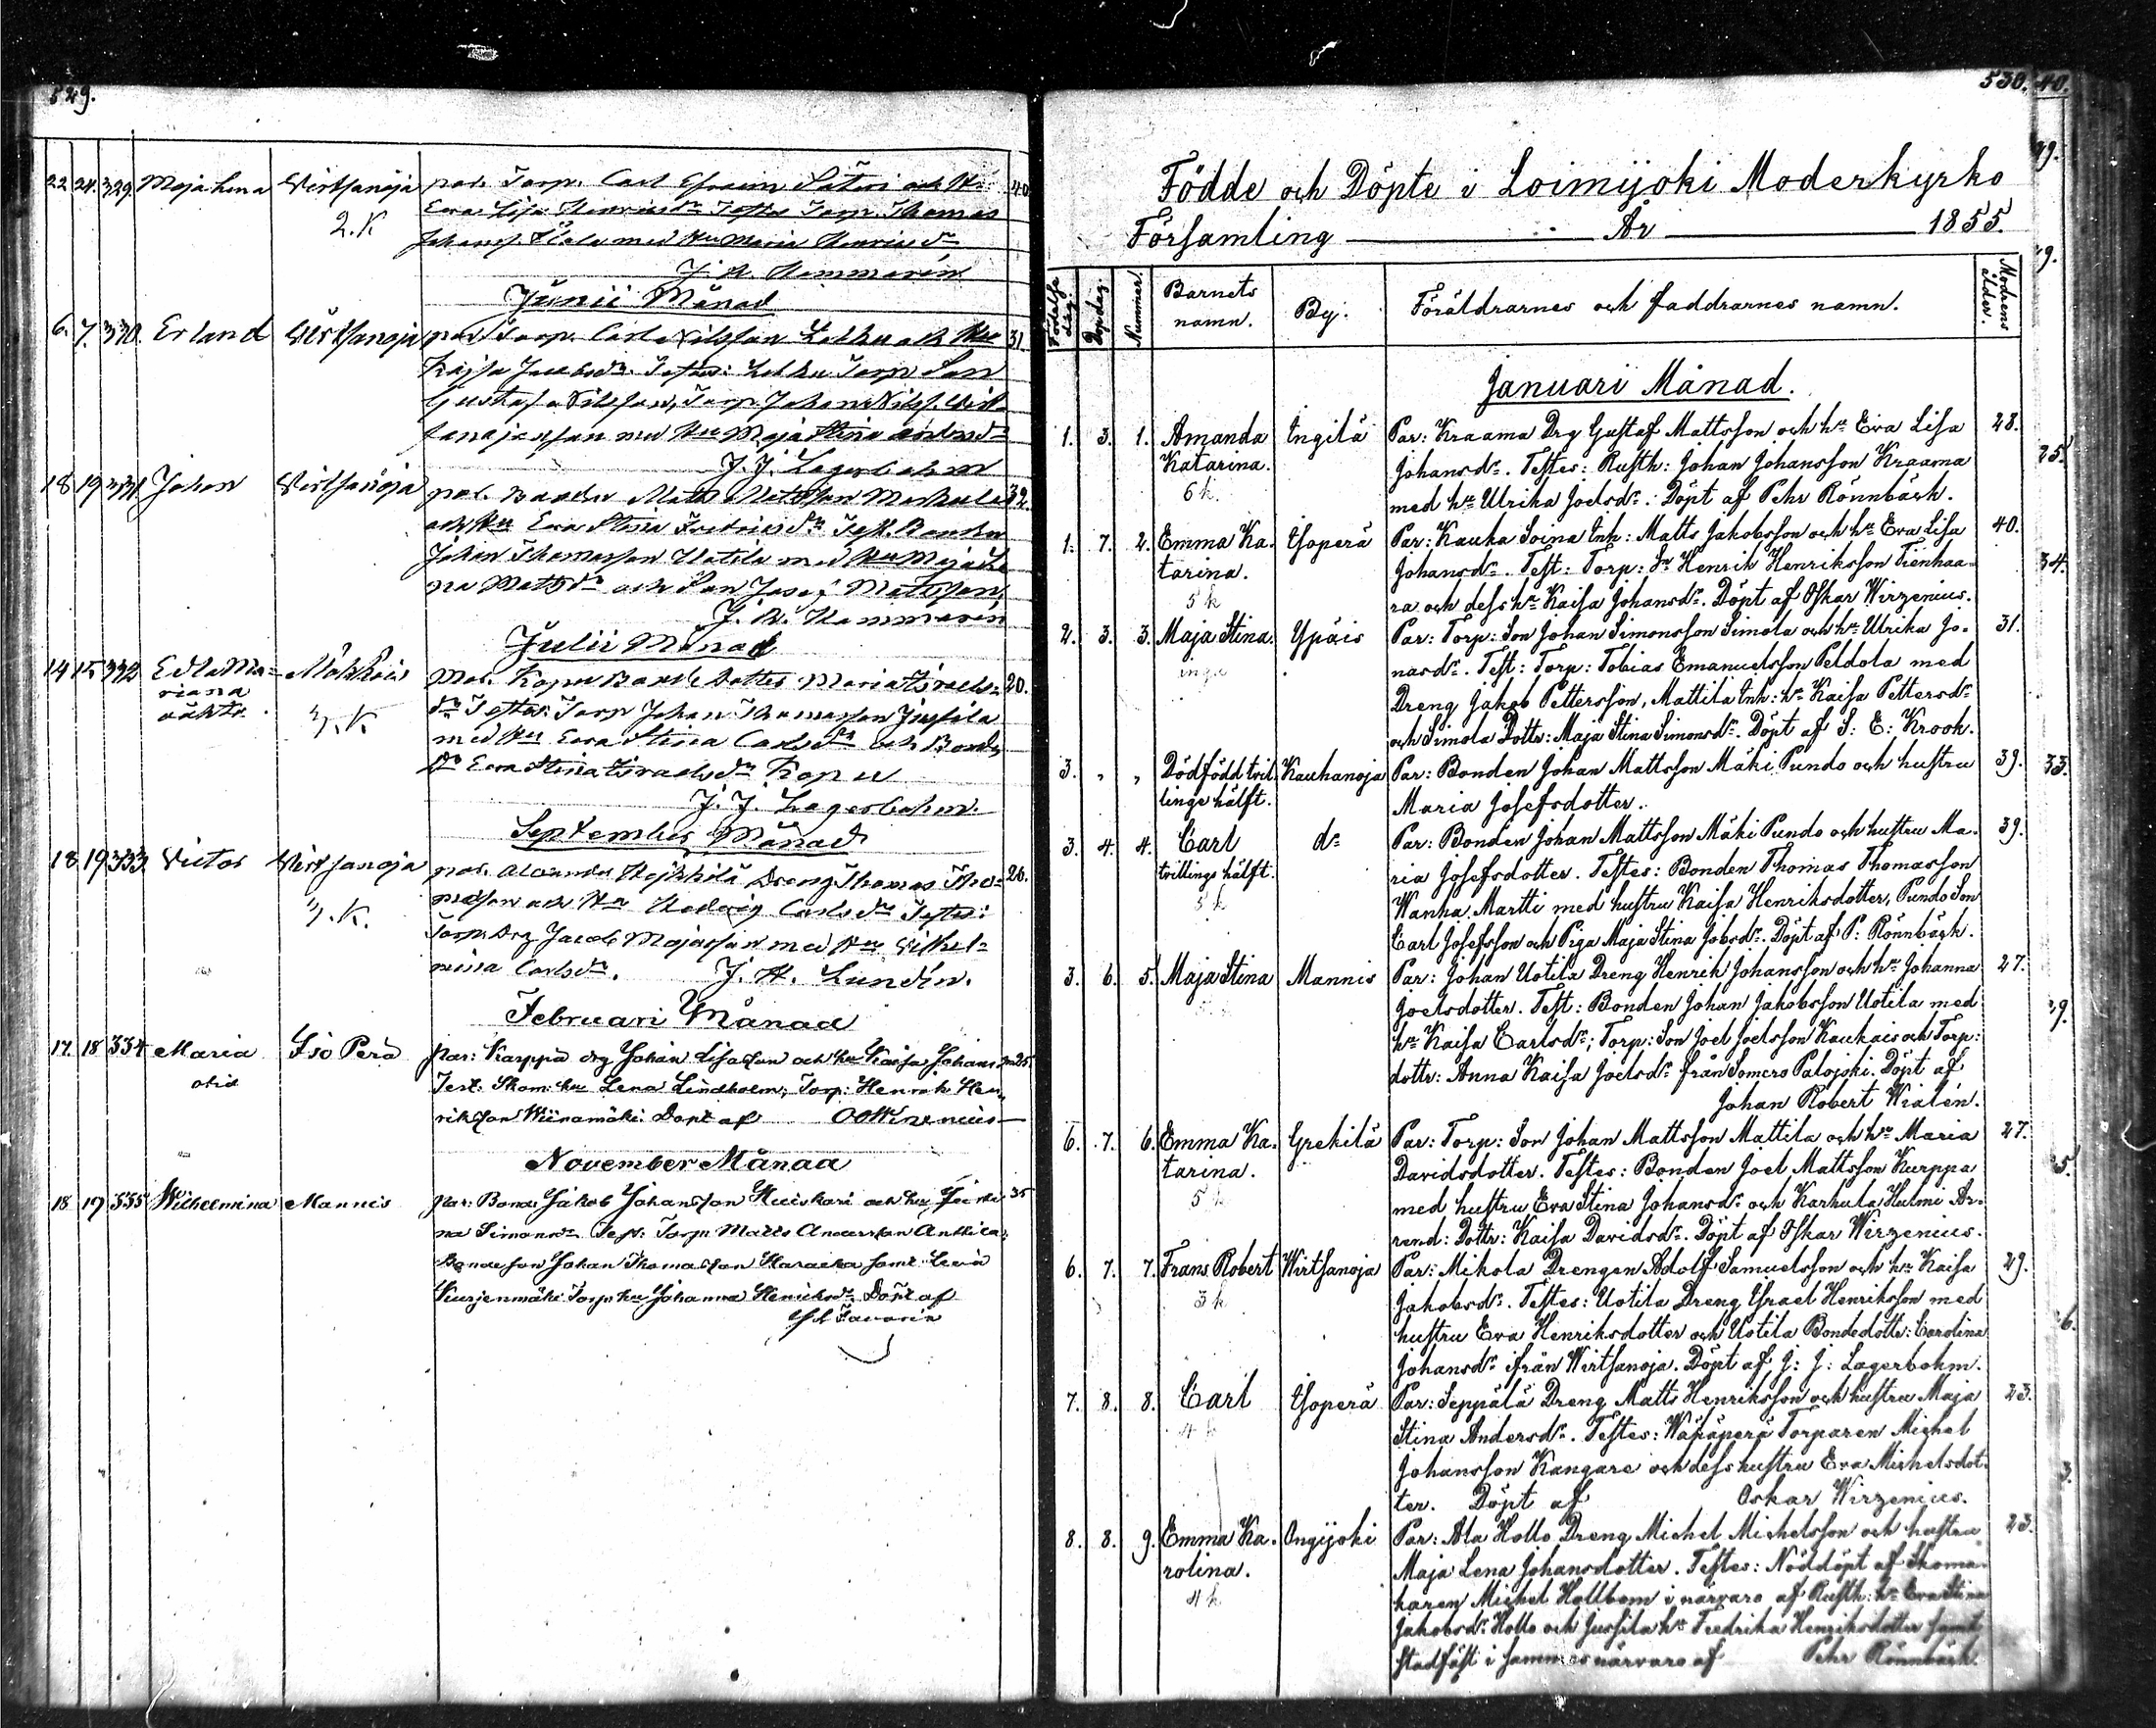 529.
22 24. 329. Maja Lena Wirtsanoja par. Torp. Carl Efraim Säteri och Hu: 40
2.K Eva Lisa Henriksdr Testes Torp. Thomas
Johansf. med Hu Maria Henriksdr
J. A. Hammarén
Junii Månad
6. 7. 330. Erland Wirtsanoja par. Torp. Carl Nilsson och Hu 31.
Kajsa Jacobsdr. Testes: Torp Son
Gustaf Nilsson, Torp. Johan
med Hu Maja Stina
J. J. Lagerbohm
18 19 331 Johan Wirtsanoja par. Bonden Matts Mattsson 32.
och Hu Eva Stina Fredricsdr Test. Bonden
Johan Thomasson Uotila med Hu Maja Le
na Mattsdr och Son Josef Mattsson,
J. A. Hammarén
Julii Månad
14 15 332 Edla Ma= Mälkkäis Mod. Kopu Bonde Dotter Maria Israels= 20.
riana
oäkta. 3.K dr Testes: Torp Johan Thomasson Jussila
med Hu Eva Stina Carlsdr och Bonde
Dr Eva Stina Israelsdr Kopu
J. J. Lagerbohm.
September Månad
18 19 333 Victor Wirtsanoja par. Heikkilä Dreng Thomas Tho= 26.
3.K. masson och Hu Hedvig Carlsdr Testes:
Torp. Drg Jacob Majasson med Hu Vilhel=
mina Carlsdr. J. A. Lundén.
Februari Månad
17 18 334 Maria Iso Perä Par: Karppa drg Johan Lisasson och hu Kaisa Johansdr 25.
Test: Skom: hu Lena Lindholm, Torp: Henrik Hen
rikson Wiinamäki. Döpt af O Wirzenius
November Månad
18 19 335 Wilhelmina Mannis Par: Bond Jakob Johansson Kuiskari och hu 35
na Simonsdr. Test: Torp Matts Andersson Anttila,
Bondeson Johan Thomasson samt
Kurjenmäki Torp hu Johanna Henriksdr Döpt af
530. 40.
Födde och Döpte i Loimijoki Moderkyrko
Församling År 1855.
Födelse dag. Dopdag. Nummer. Barnets namn. By. Föräldrarnes och faddrarnes namn. Modrens ålder.
Januari Månad.
1. 3. 1. Amanda Ingilä Par: Kraama Drg Gustaf Mattsson och hu Eva Lisa 28.
Katarina. Johansdr. Testes: Rusth: Johan Johansson Kraama
6 k. med hu Ulrika Joelsdr. Döpt af Pehr Rönnbäck.
1. 7. 2. Emma Ka- Isoperä Par: Kauka Soina Inh: Matts Jakobsson och hu Eva Lisa 40.
tarina. Johansdr. Test: Torp: Sn Henrik Henriksson Tienhaa-
5 k ra och dess hu Kaisa Johansdr. Döpt af Oskar Wirzenius.
2. 3. 3. Maja Stina. Ypäis Par: Torp: Son Johan Simonsson Simola och hu Ulrika Jo- 31.
inga nasdr. Test: Torp: Tobias Emanuelsson Peldola med
Dreng Jakob Pettersson, Mattila Inh: hu Kaisa Pettersdr
och Simola Dottr: Maja Stina Simonsdr. Döpt af S: E: Krook.
3. " " Dödfödd tvil- Kauhanoja Par: Bonden Johan Mattsson Mäki Pundo och hustru 39.
linge hälft. Maria Josefsdotter.
3. 4. 4. Carl do Par: Bonden Johan Mattsson Mäki Pundo och hustru Ma- 39.
tvillinge hälft. ria Josefsdotter. Testes: Bonden Thomas Thomasson
5 k Wanha Martti med hustru Kaisa Henriksdotter, Pundo Son
Carl Josefsson och Piga Maja Stina Jobsdr. Döpt af P: Rönnbäck.
3. 6. 5. Maja Stina Mannis Par: Johan Uotila Dreng Henrik Johansson och hu Johanna 27.
Joelsdotter. Test: Bonden Johan Jakobsson Uotila med
hu Kaisa Carlsdr; Torp: Son Joel Joelsson Kaukais och Torp:
dottr: Anna Kaisa Joelsdr från Somero Palojoki. Döpt af
Johan Robert Wialén.
6. 7. 6. Emma Ka- Grekilä Par: Torp: Son Johan Mattsson Mattila och hu Maria 27.
tarina. Davidsdotter. Testes: Bonden Joel Mattsson Kurppa
5 k med hustru Eva Stina Johansdr och Karhula Hulmi Ar-
rend: Dottr: Kaisa Davidsdr. Döpt af Oskar Wirzenius.
6. 7. 7. Frans Robert Wirtsanoja Par: Mikola Drengen Adolf Samuelsson och hu Kaisa 29.
3 k Jakobsdr. Testes: Uotila Dreng Israel Henriksson med
hustru Eva Henriksdotter och Uotila Bondedottr: Carolina
Johansdr ifrån Wirtsanoja. Döpt af J: J: Lagerbohm.
7. 8. 8. Carl Isoperä Par: Seppälä Dreng Matts Henriksson och hustru Maja 23.
4 k Stina Andersdr. Testes: Wähäperä Torparen Michel
Johansson Kangare och dess hustru Eva Michelsdot-
ter. Döpt af Oskar Wirzenius.
8. 8. 9. Emma Ka- Ongijoki Par: Ala Hollo Dreng Michel Michelsson och hustru 23.
rolina. Maja Lena Johansdotter. Testes: Nöddöpt af Skoma-
4 k karen Michel Hollbom i närvaro af Rusth: hu Eva Stina
Jakobsdr Hollo och Jussila hu Fredrika Henriksdotter samt
stadfäst i sammas närvaro af Pehr Rönnbäck.